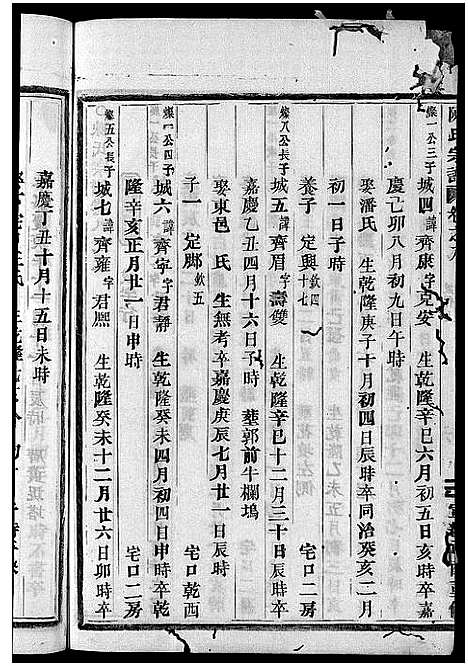 陳氏宗譜 卷之八
燦一公三子 城四 諱 齊康 字 克安 生乾隆辛巳六月初五日亥時卒嘉
慶己卯八月初九日午時
娶潘氏 生乾隆庚子十月初四日辰時卒同治癸亥二月
初一日子時
養子 定興 欽四 七十
燦八公長子 城五 諱 齊眉 字 壽雙 生乾隆辛巳十二月三十日辰時 宅口二房
嘉慶乙丑四月十六日子時 塟郭前牛欄塢
娶東邑 氏 生無考卒嘉慶庚辰七月廿一日辰時
子一 定脚 欽五 宅口乾西
燦一公四子 城六 諱 齊寧 字 君靜 生乾隆癸未四月初四日申時卒乾
隆辛亥正月廿一日申時 宅口二房
燦五公長子 城七 諱 齊雍 字 君熙 生乾隆癸未十二月廿六日卯時卒
嘉慶丁丑十月十五日未時